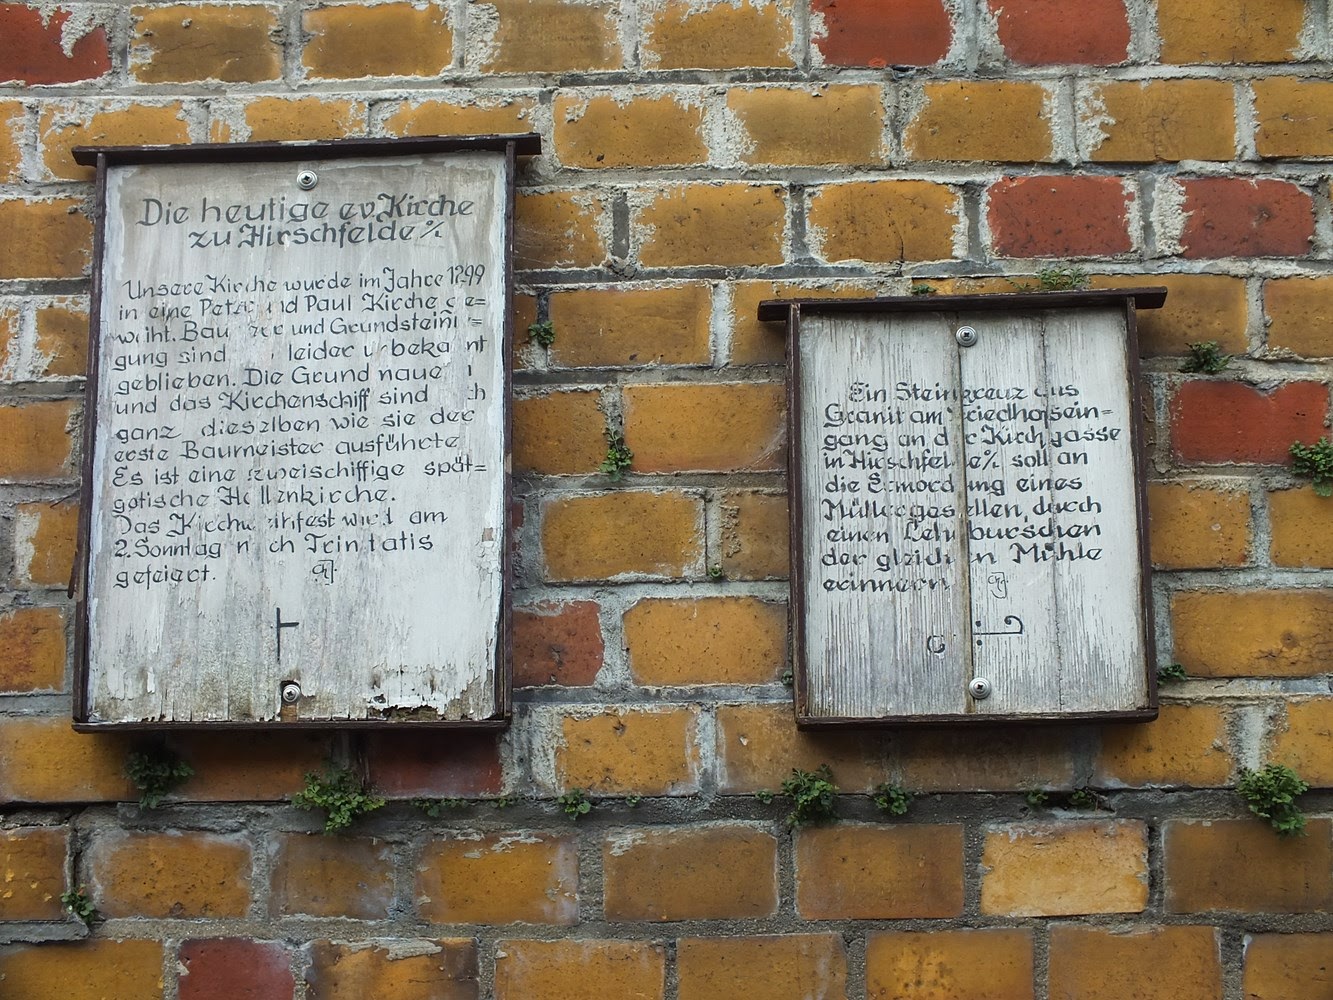 Die heutige ev. Kirche
zu Hirschfelde %
Unsere Kirche wurde im Jahre 1299
in eine Peter und Paul Kirche ge=
weiht. und Grundsteinl =
gung sind leider unbekannt
geblieben. Die Grundmauern
und das Kirchenschiff sind
ganz dieselben wie sie der
erste Baumeister ausführte.
Es ist eine zweischiffige spät=
gotische Hallenkirche.
Das Kirchweihfest wird am
2. Sonntag nach Trinitatis
gefeiert.
Ein Steinkreuz aus
Granit am Friedhofsein=
gang an der Kirchgasse
in Hirschfelde % soll an
die Ermordung eines
Müllergesellen, durch
einen Lehrburschen
der gleichen Mühle
erinnern